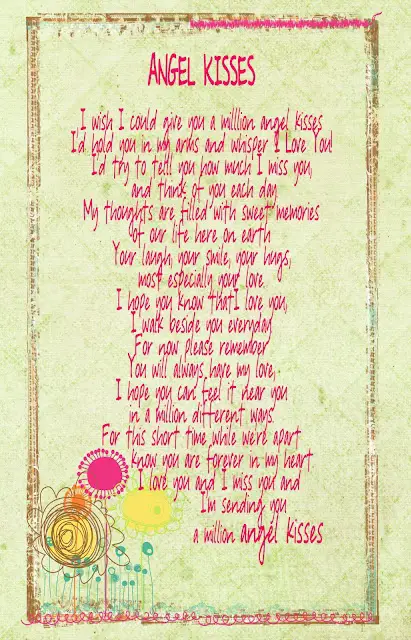 ANGEL KISSES
I wish I could give you a milllion angel kisses
I'd hold you in my arms and whisper "I Love You!
I'd try to tell you how much I miss you,
and think of you each day
My thoughts are filled with sweet memories
of our life here on earth
Your laugh, your smile, your hugs,
most especially your love.
I hope you know that I love you,
I walk beside you everyday
For now please remember
You will always have my love,
I hope you can feel it near you
in a million different ways.
For this short time while we're apart
know you are forever in my heart
I love you and I miss you and
I'm sending you
a million angel kisses